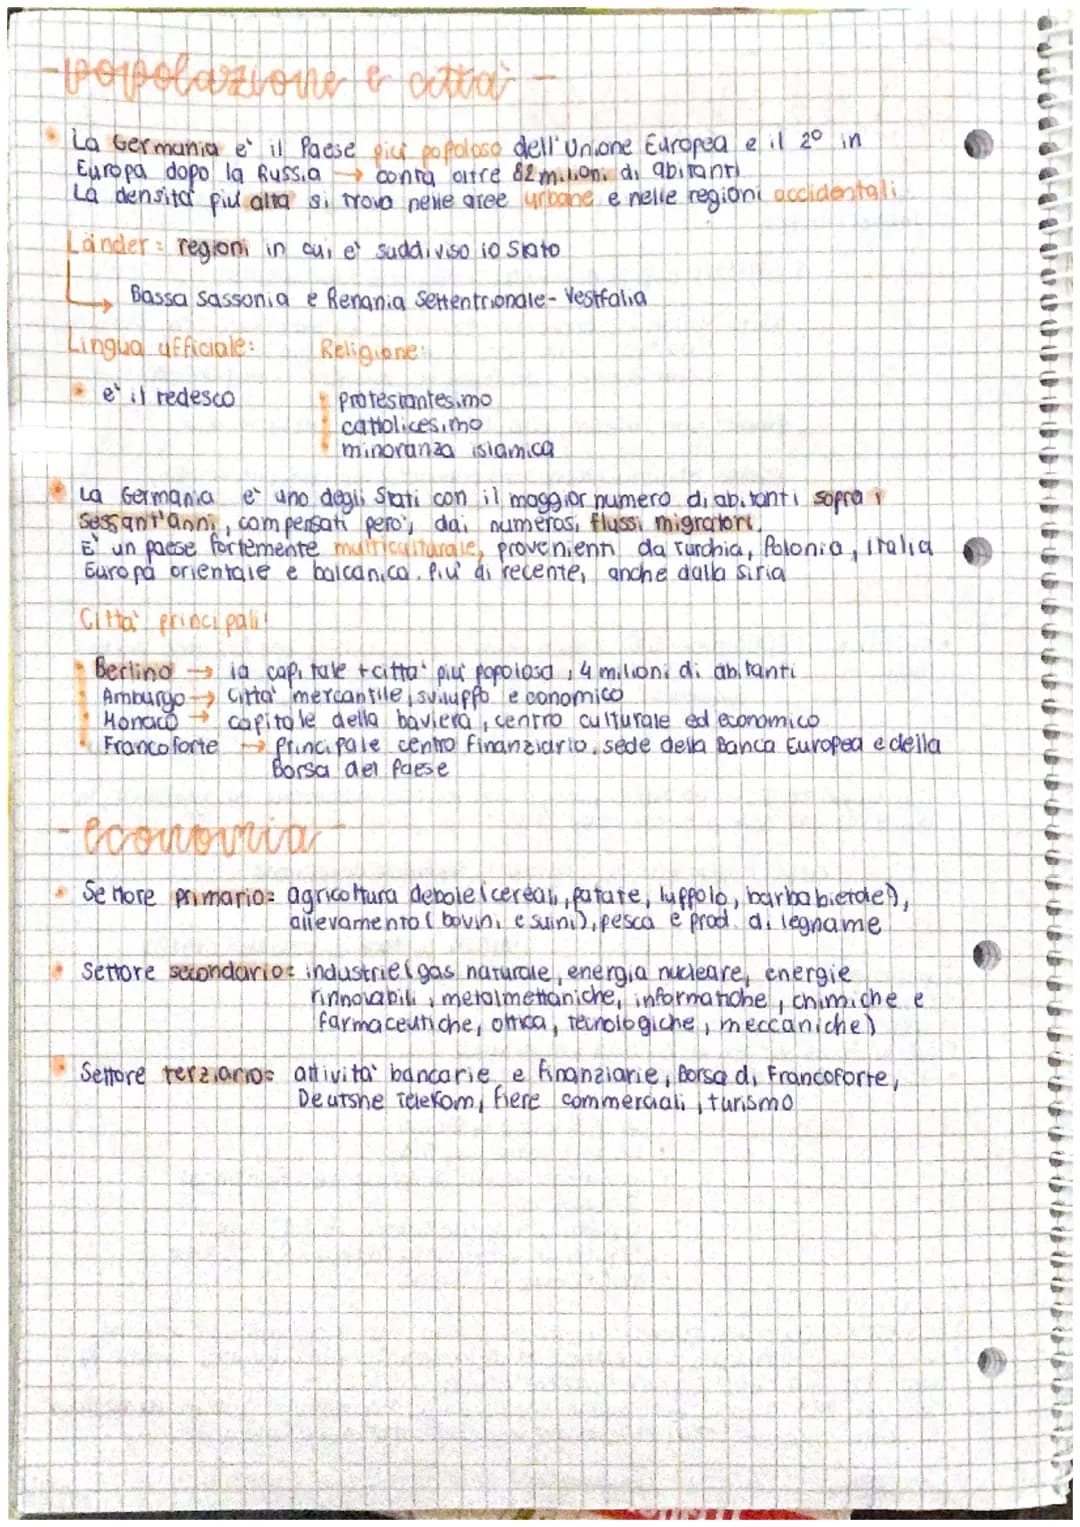 -popolazione e città-
La Germania e' il Paese più popoloso dell'Unione Europea e il 2° in
Europa dopo la Russia → conta oltre 82 milioni di abitanti
La densita' piu' alta si trova nelle aree urbane e nelle regioni occidentali
Länder: regioni in cui e' suddiviso lo Stato
Bassa Sassonia e Renania Settentrionale-Vestfalia
Lingua ufficiale: Religione:
e' il tedesco protestantesimo
cattolicesimo
minoranza islamica
La Germania e' uno degli Stati con il maggior numero di abitanti sopra i
sessant'anni, compensati pero', dai numerosi flussi migratori.
E' un paese fortemente multiculturale, provenienti da Turchia, Polonia, Italia
Europa orientale e balcanica. Piu' di recente, anche dalla Siria
Citta' principali:
Berlino → la capitale + citta' piu' popolosa, 4 milioni di abitanti
Amburgo → citta' mercantile, sviluppo economico
Monaco → capitale della baviera, centro culturale ed economico
Francoforte → principale centro finanziario, sede della Banca Europea e della
Borsa del Paese
-economia-
Settore primario: agricoltura debole (cereali, patate, luppolo, barbabietole),
allevamento (bovini e suini), pesca e prod. di legname
Settore secondario: industrie (gas naturale, energia nucleare, energie
rinnovabili, metalmettaniche, informatiche, chimiche e
farmaceutiche, ottica, tecnologiche, meccaniche)
Settore terziario: attivita' bancarie e finanziarie, Borsa di Francoforte,
Deutshe Telekom, fiere commerciali, turismo